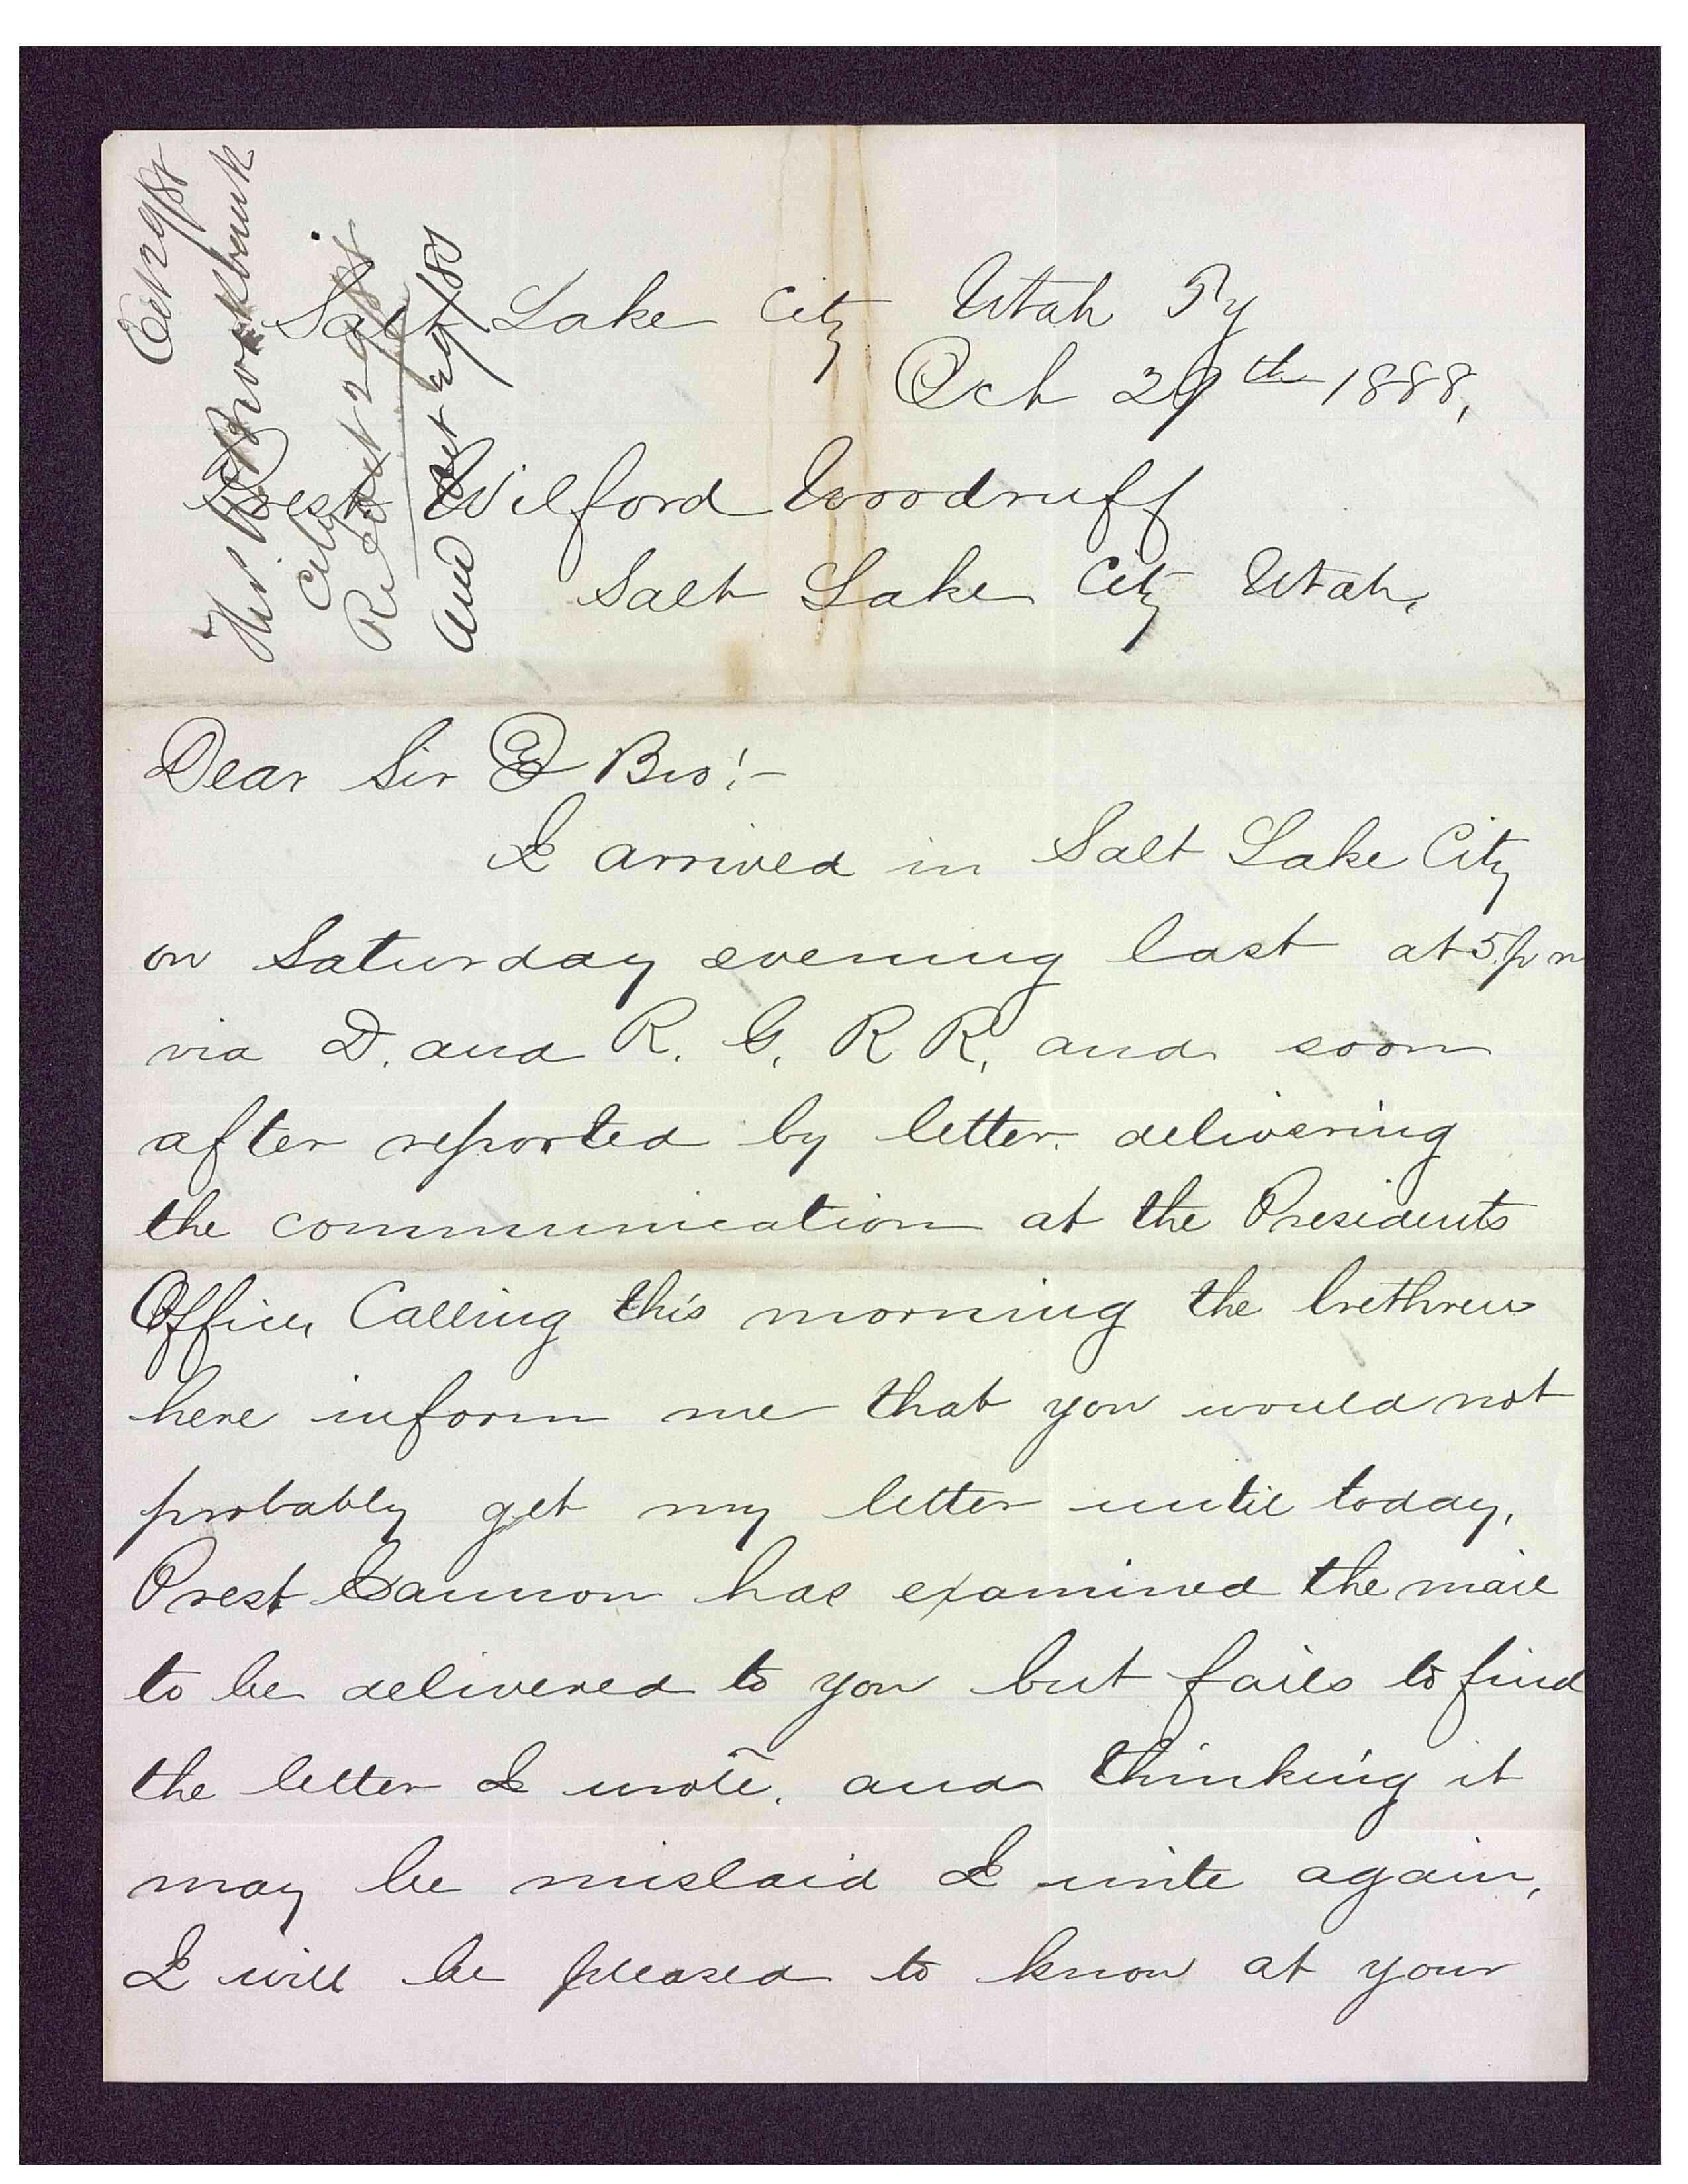 Oct 29/88
Thos W Brookbank
City
Rec Oct 29/88
Ans Oct 29/88
Salt Lake City Utah Ty
Oct 29th 1888,
Prest. Wilford Woodruff
Salt Lake City Utah,
Dear Sir & Bro!-
I arrived in Salt Lake City
on Saturday evening last at 5 p m
via D. and R. G. R R, and soon
after reported by letter. delivering
the communication at the Presidents
Office, Calling this morning the brethren
here inform me that you would not
probably get my letter until today,
Prest Cannon has examined the mail
to be delivered to you but fails to find
the letter I wrote. and thinking it
may be mislaid I write again,
I will be pleased to know at your